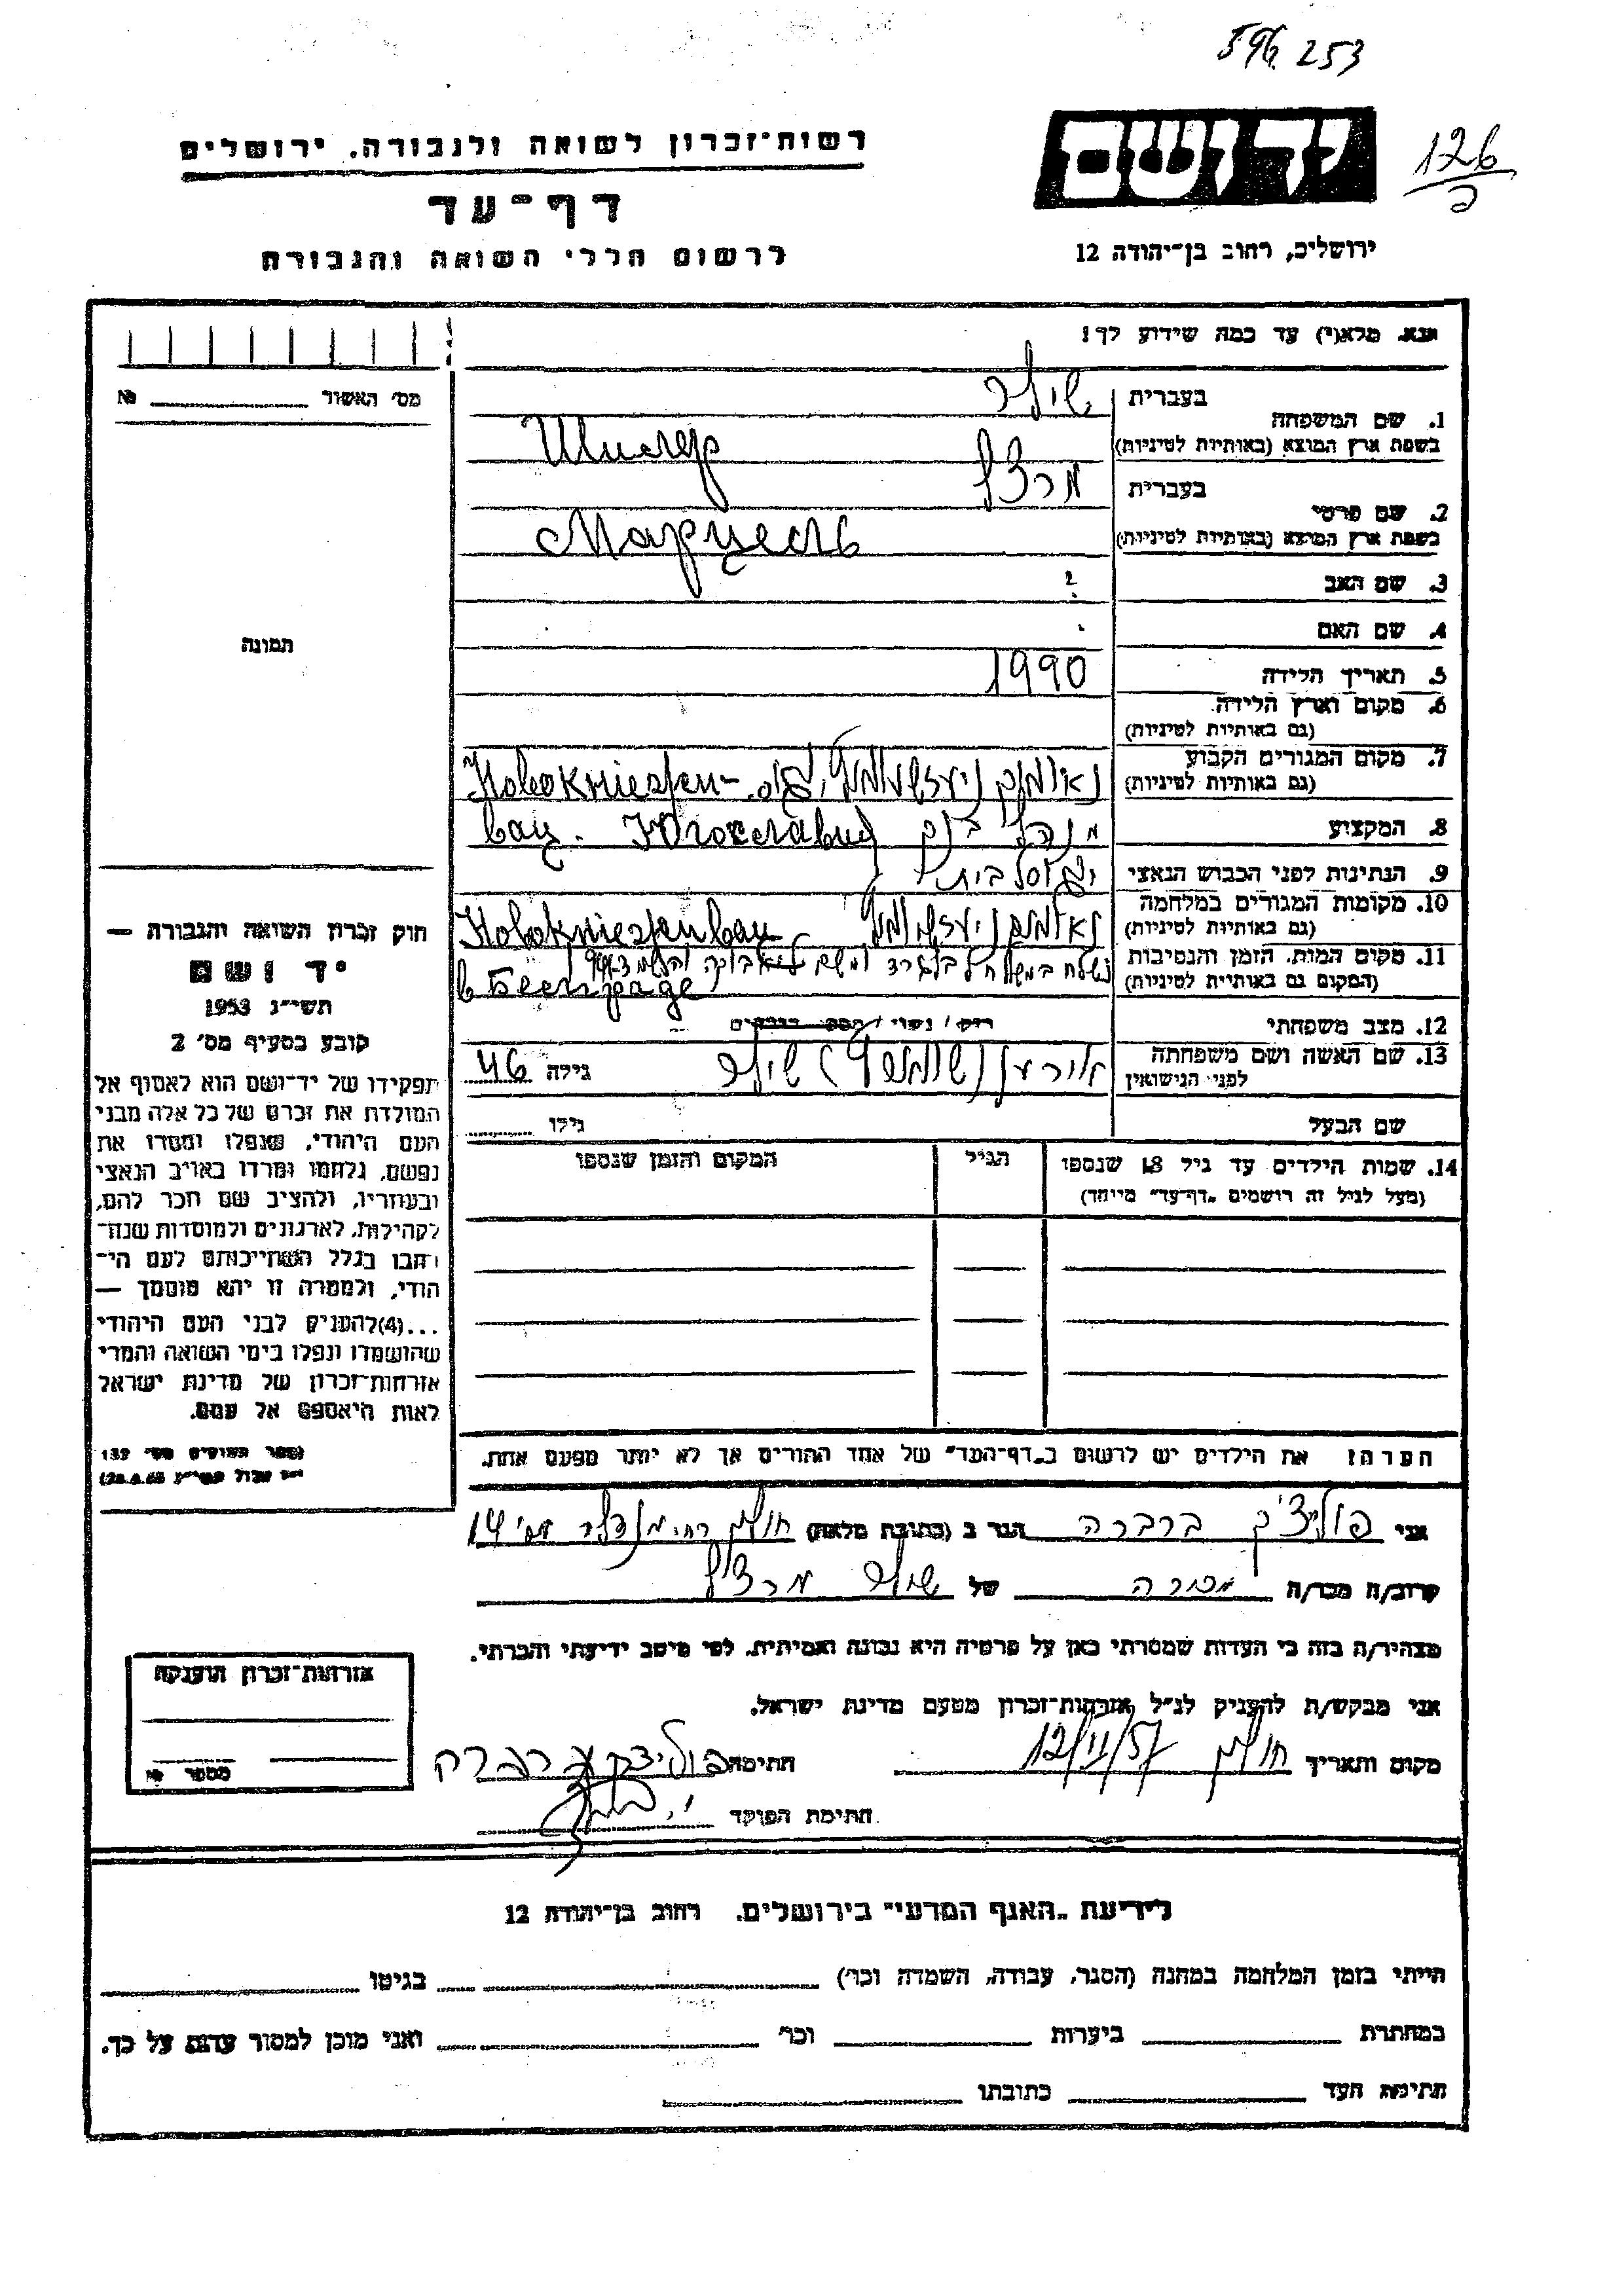 596 253
126
ג
יד ושם
ירושלים, רחוב בן־יהודה 12
רשות־זכרון לשואה ולגבורה, ירושלים
דף־עד
לרשום חללי השואה והגבורה
נא מלא(י) עד כמה שידוע לך!
מס׳ האשור №
תמונה
1. שם המשפחה
בעברית שילר
בשפת ארץ המוצא (באותיות לטיניות) Шилер
2. שם פרטי
בעברית מרצל
בשפת ארץ המוצא (באותיות לטיניות) Марцель
3. שם האב ?
4. שם האם
5. תאריך הלידה 1990
6. מקום וארץ הלידה
(גם באותיות לטיניות)
7. מקום המגורים הקבוע
(גם באותיות לטיניות)
8. המקצוע מנהל
9. הנתינות לפני הכבוש הנאצי
10. מקומות המגורים במלחמה
(גם באותיות לטיניות)
11. מקום המות, הזמן והנסיבות
(המקום גם באותיות לטיניות)
12. מצב משפחתי רוק / נשוי / מספר הילדים
13. שם האשה ושם משפחתה
לפני הנישואין שילר גילה 46
שם הבעל גילו
14. שמות הילדים עד גיל 18 שנספו הגיל המקום והזמן שנספו
(מעל לגיל זה רושמים „דף־עד״ מיוחד)
הערה: את הילדים יש לרשום ב„דף־העד״ של אחד ההורים אך לא יותר מפעם אחת.
חוק זכרון השואה והגבורה —
יד ושם
תשי״ג 1953
קובע בסעיף מס׳ 2
תפקידו של יד־ושם הוא לאסוף אל
המולדת את זכרם של כל אלה מבני
העם היהודי, שנפלו ומסרו את
נפשם, נלחמו ומרדו באויב הנאצי
ובעוזריו, ולהציב שם וזכר להם,
לקהילות, לארגונים ולמוסדות שנח־
רבו בגלל השתייכותם לעם הי־
הודי, ולמטרה זו יהא מוסמך —
...(4) להעניק לבני העם היהודי
שהושמדו ונפלו בימי השואה והמרי
אזרחות־זכרון של מדינת ישראל
לאות היאספם אל עמם.
(ספר החוקים מס׳ 132
אני ברברה הגר ב (כתובת מלאה) חולון מס׳ 14
קרוב/ה מכר/ה מכרה של שילר מרצל
מצהיר/ה בזה כי העדות שמסרתי כאן על פרטיה היא נכונה ואמיתית, לפי מיטב ידיעתי והכרתי.
אני מבקש/ת להעניק לנ״ל אזרחות־זכרון מטעם מדינת ישראל.
מקום ותאריך חולון 12/11/57 חתימה
חתימת הפוקד
אזרחות־זכרון הוענקה
מספר №
לידיעת „האגף המדעי״ בירושלים, רחוב בן־יהודה 12
הייתי בזמן המלחמה במחנה (הסגר, עבודה, השמדה וכו׳) בגיטו
במחתרת ביערות וכו׳ ואני מוכן למסור עדות על כך.
חתימת העד כתובתו